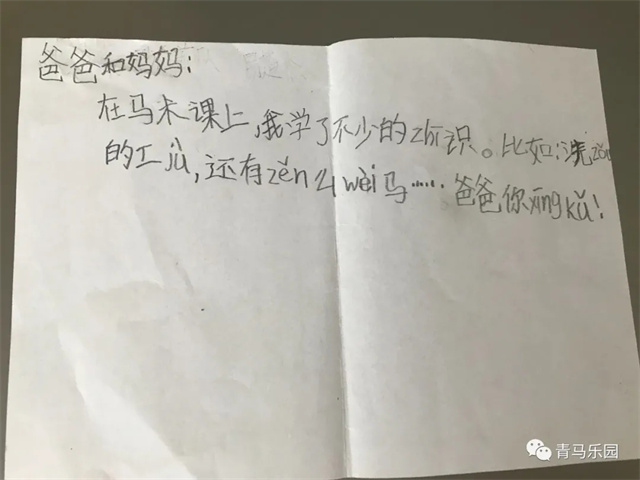 爸爸和妈妈：
在马术课上，我学了不少的zhī识。比如：洗zǎo
的工jù，还有zěn么wèi马……爸爸，你xīngkǔ！
青马乐园